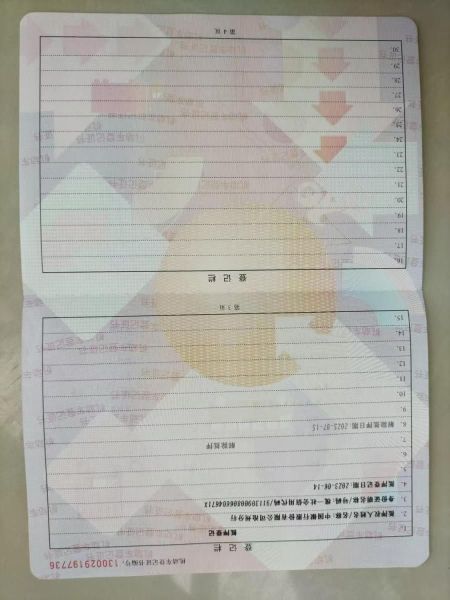 机动车登记证书编号: 130029197736
登记栏
1. 抵押登记
2. 抵押权人姓名/名称: 中国银行股份有限公司沧州分行
3. 身份证明名称/号码: 统一社会信用代码/91130900806604671X
4. 抵押登记日期: 2023-06-14
5.
6.
7. 解除抵押
8. 解除抵押日期: 2025-07-15
9.
10.
11.
12.
13.
14.
15.
第 3 页
登记栏
16.
17.
18.
19.
20.
21.
22.
23.
24.
25.
26.
27.
28.
29.
30.
第 4 页